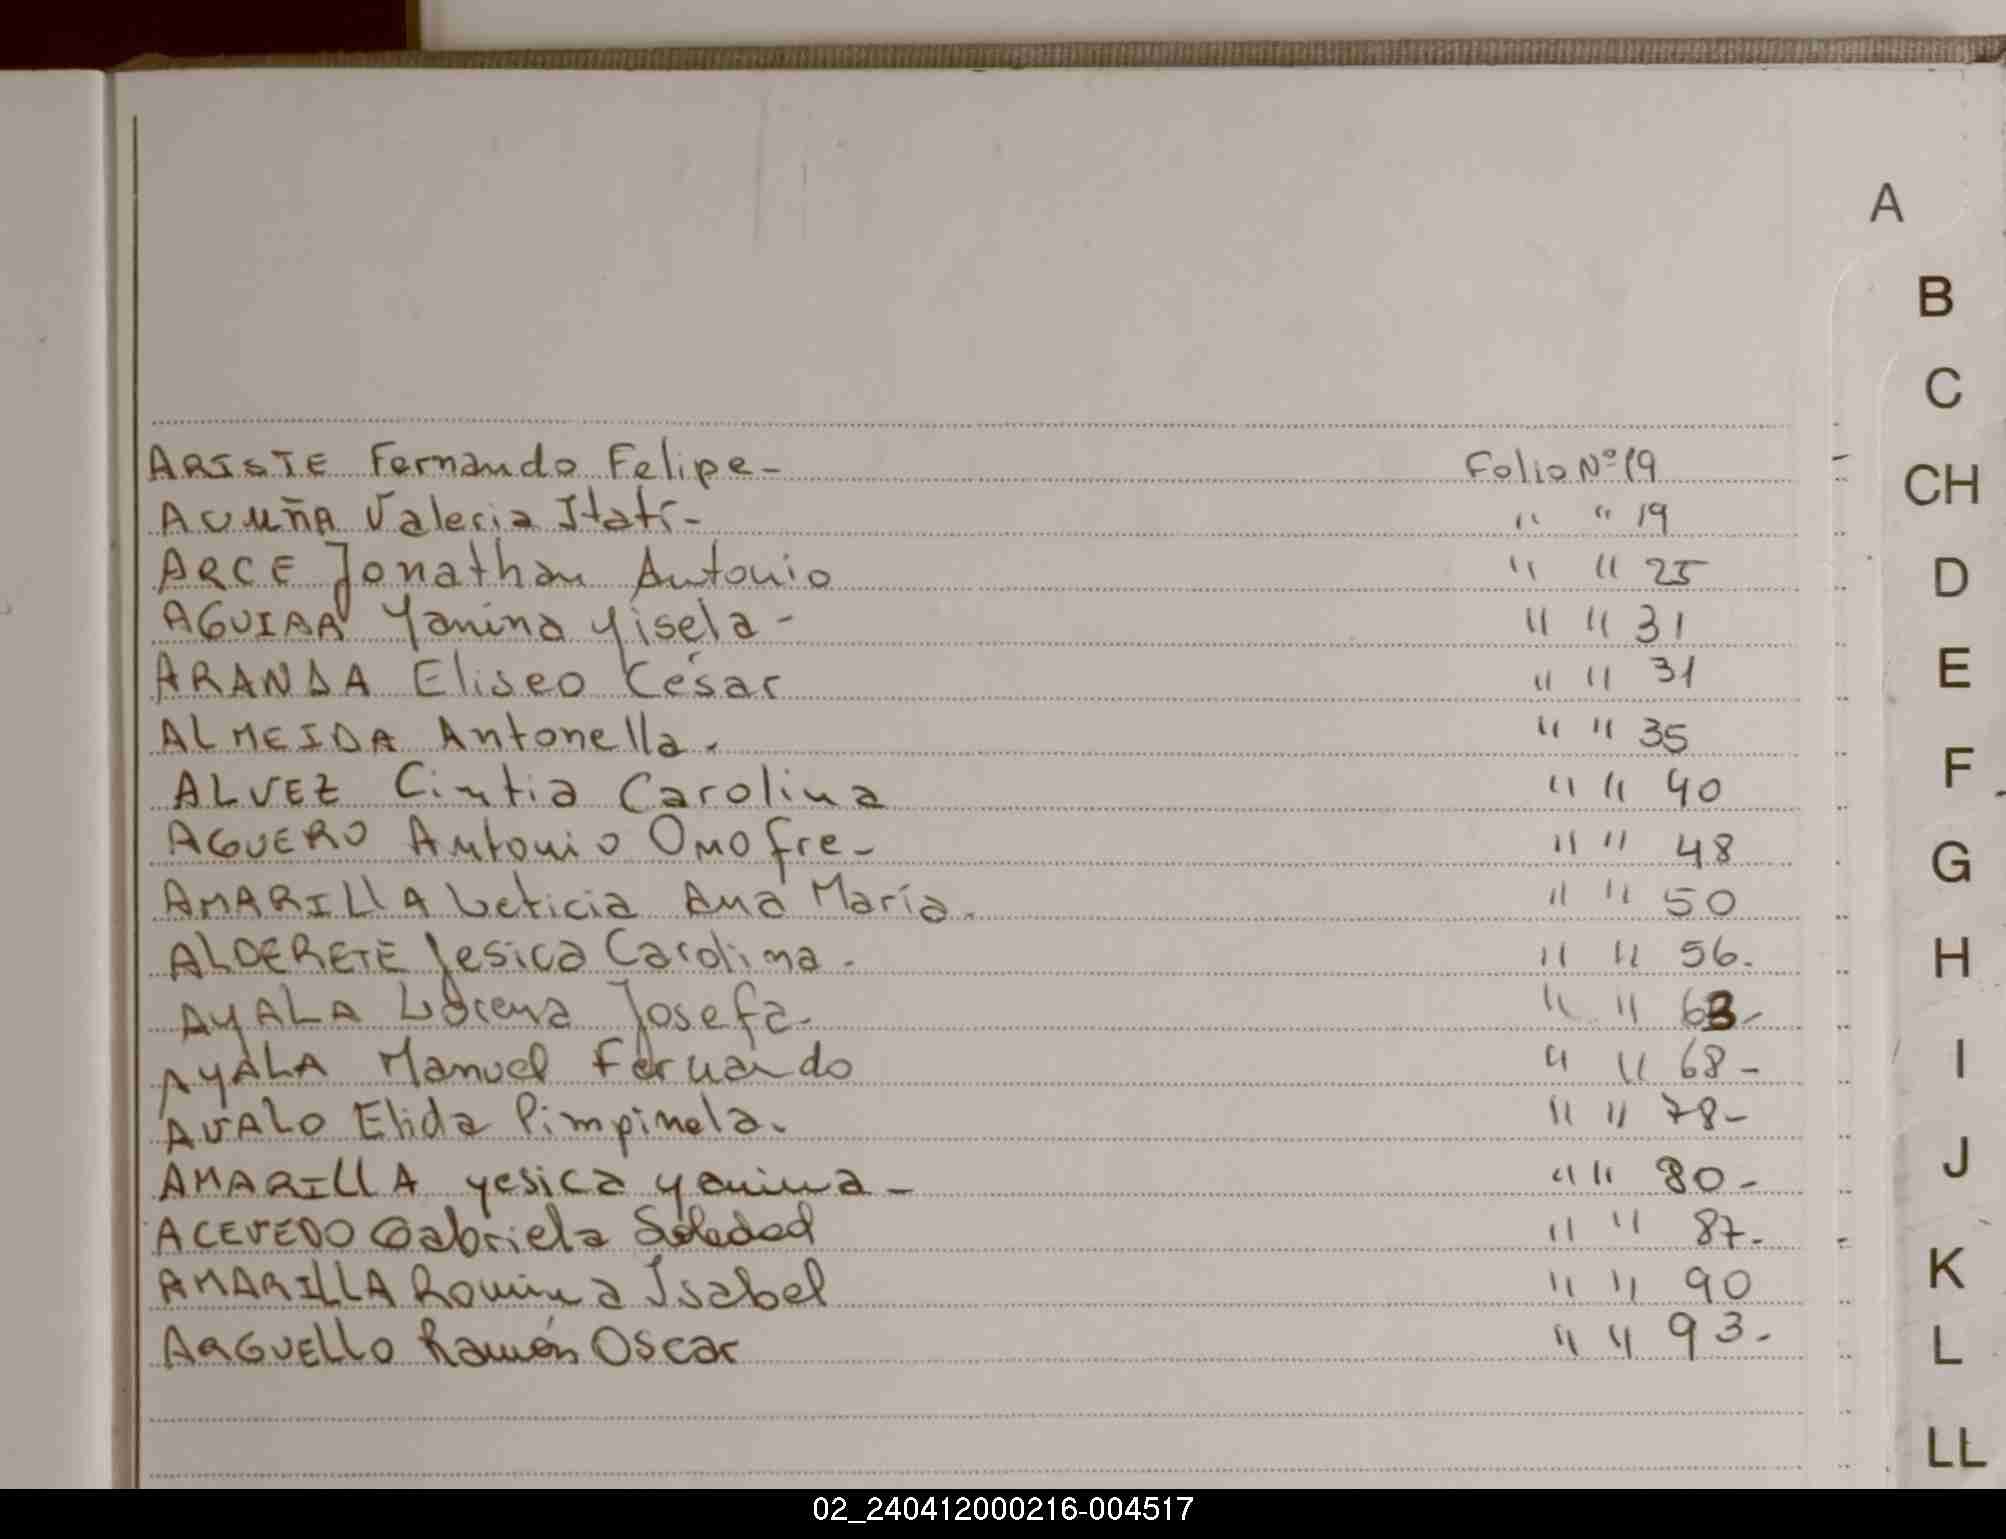 A
B
C
CH
D
E
F
G
H
I
J
K
L
LL
ARISTE Fernando Felipe- Folio Nº 19
ACUÑA Valeria Itatí- " " 19
ARCE Jonathan Antonio " " 25
AGUIAR Yanina Yisela- " " 31
ARANDA Eliseo César " " 31
ALMEIDA Antonella. " " 35
ALVEZ Cintia Carolina " " 40
AGUERO Antonio Onofre- " " 48
AMARILLA Leticia Ana María. " " 50
ALDERETE Jesica Carolina. " " 56.
AYALA Lorena Josefa- " " 63-
AYALA Manuel Fernando " " 68-
AVALO Elida Pimpinela. " " 78-
AMARILLA Yesica Yanina- " " 80-
ACEVEDO Gabriela Soledad " " 87-
AMARILLA Romina Isabel " " 90
ARGUELLO Ramón Oscar " " 93-
02_240412000216-004517